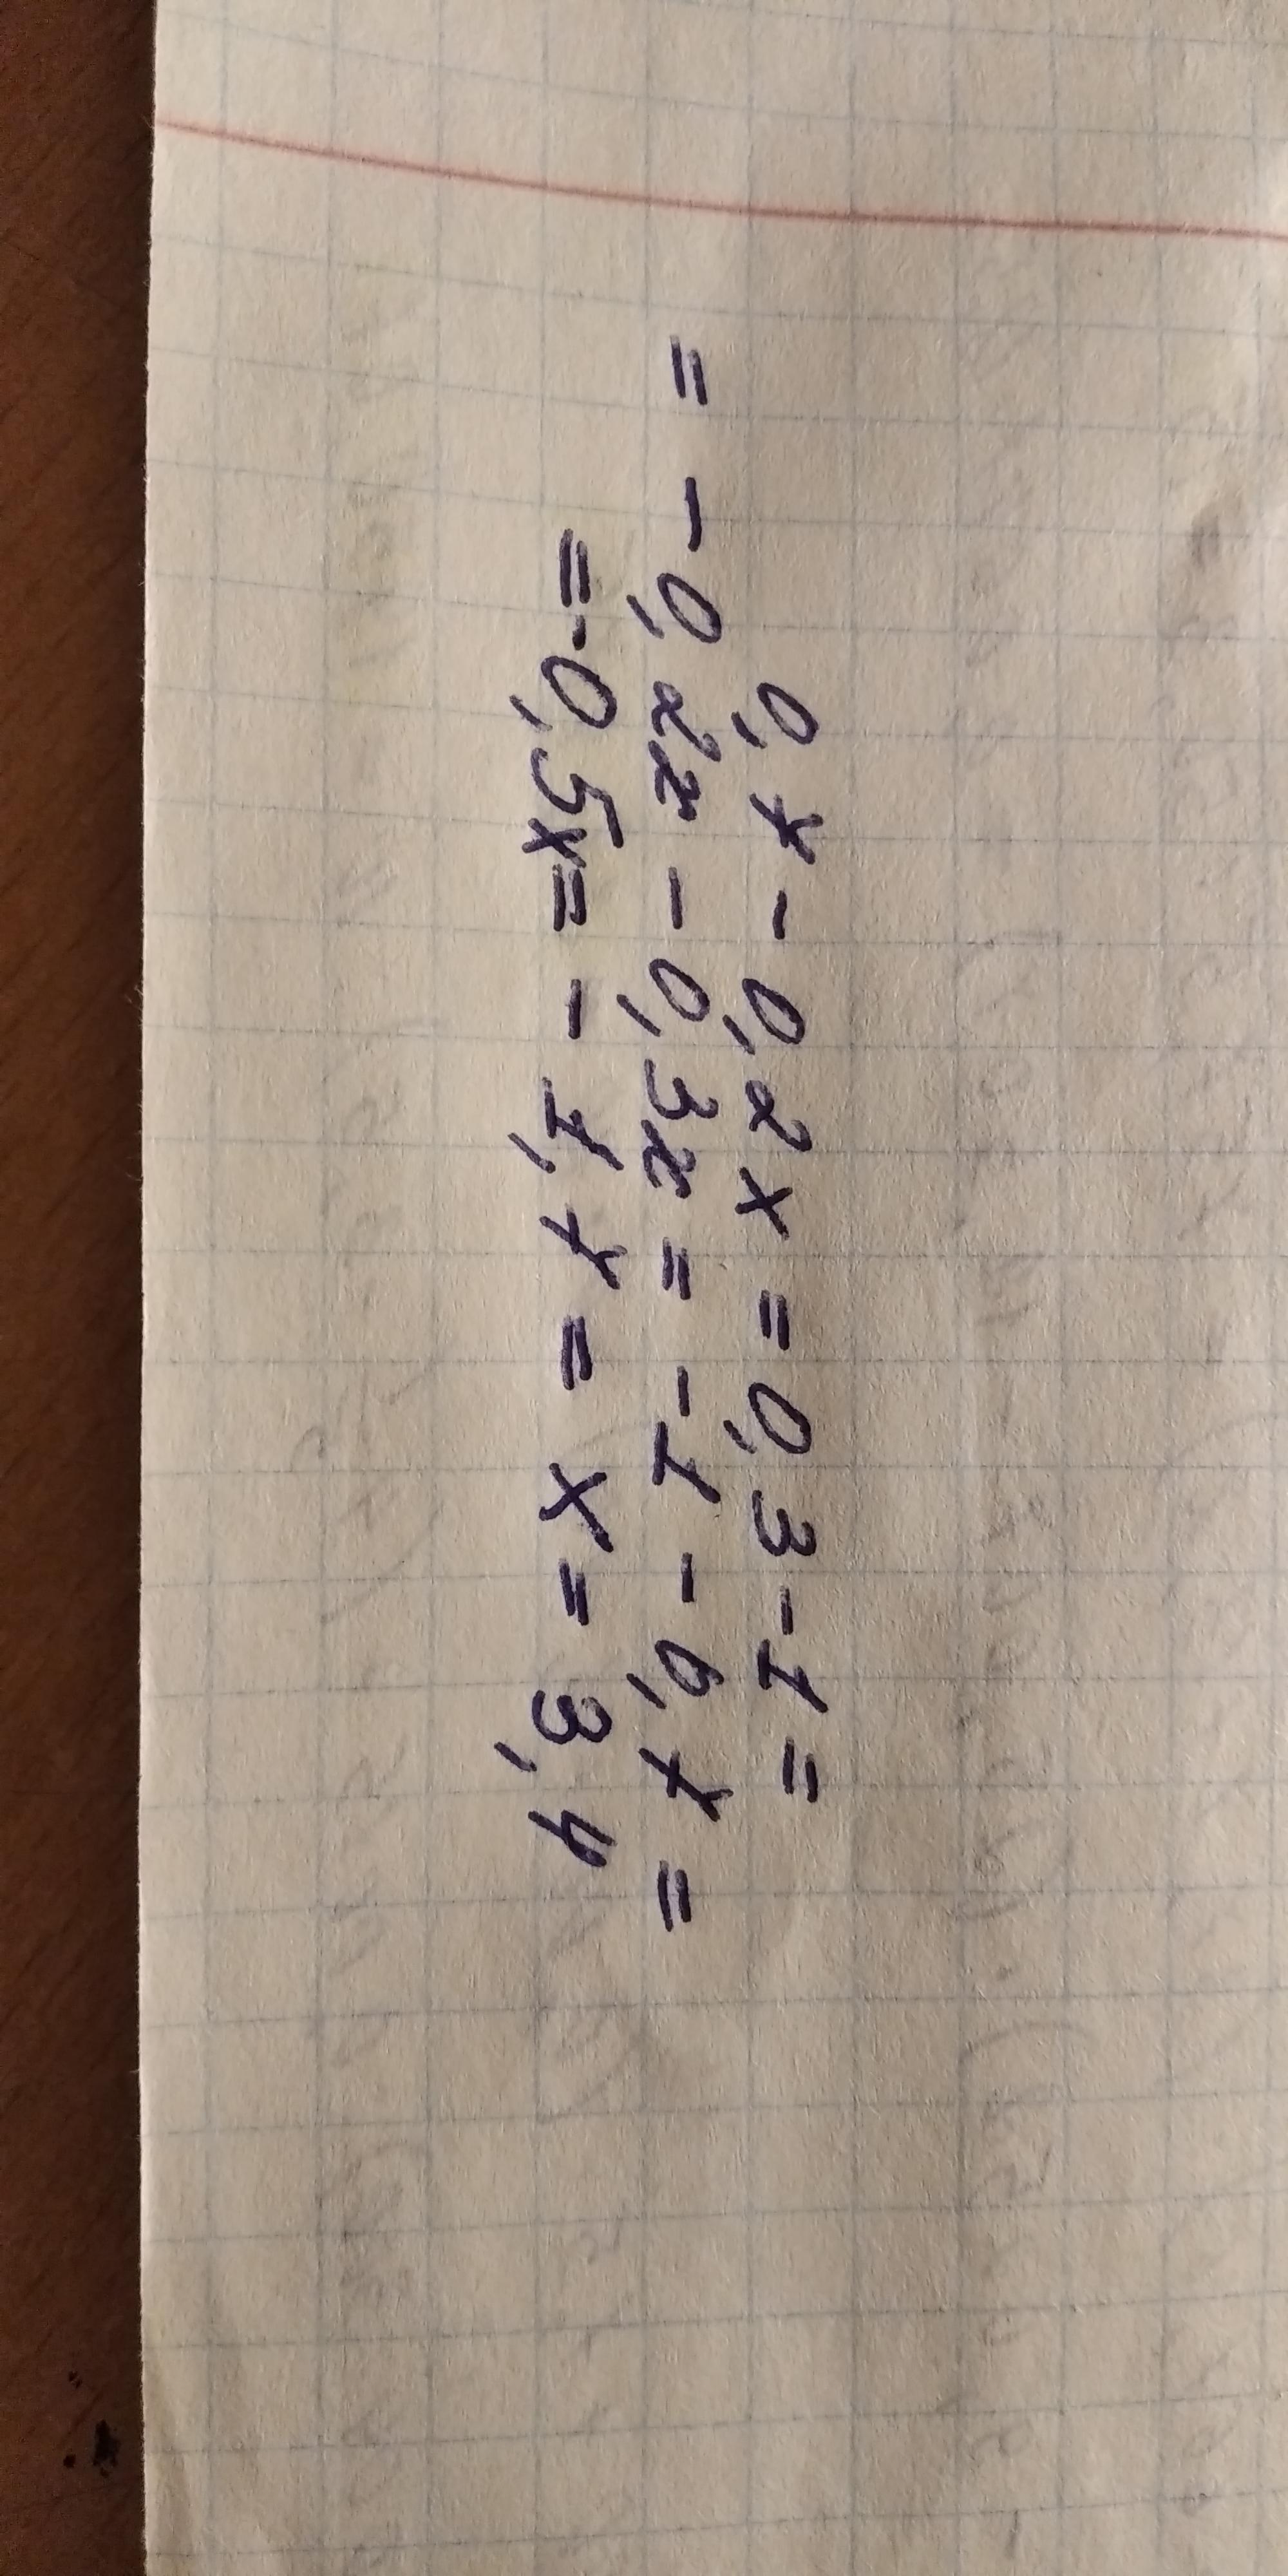 0,7 - 0,2x = 0,3 - 1 =
= - 0,2x - 0,3x = - 1 - 0,7 =
= - 0,5x = - 1,7 = x = 3,4